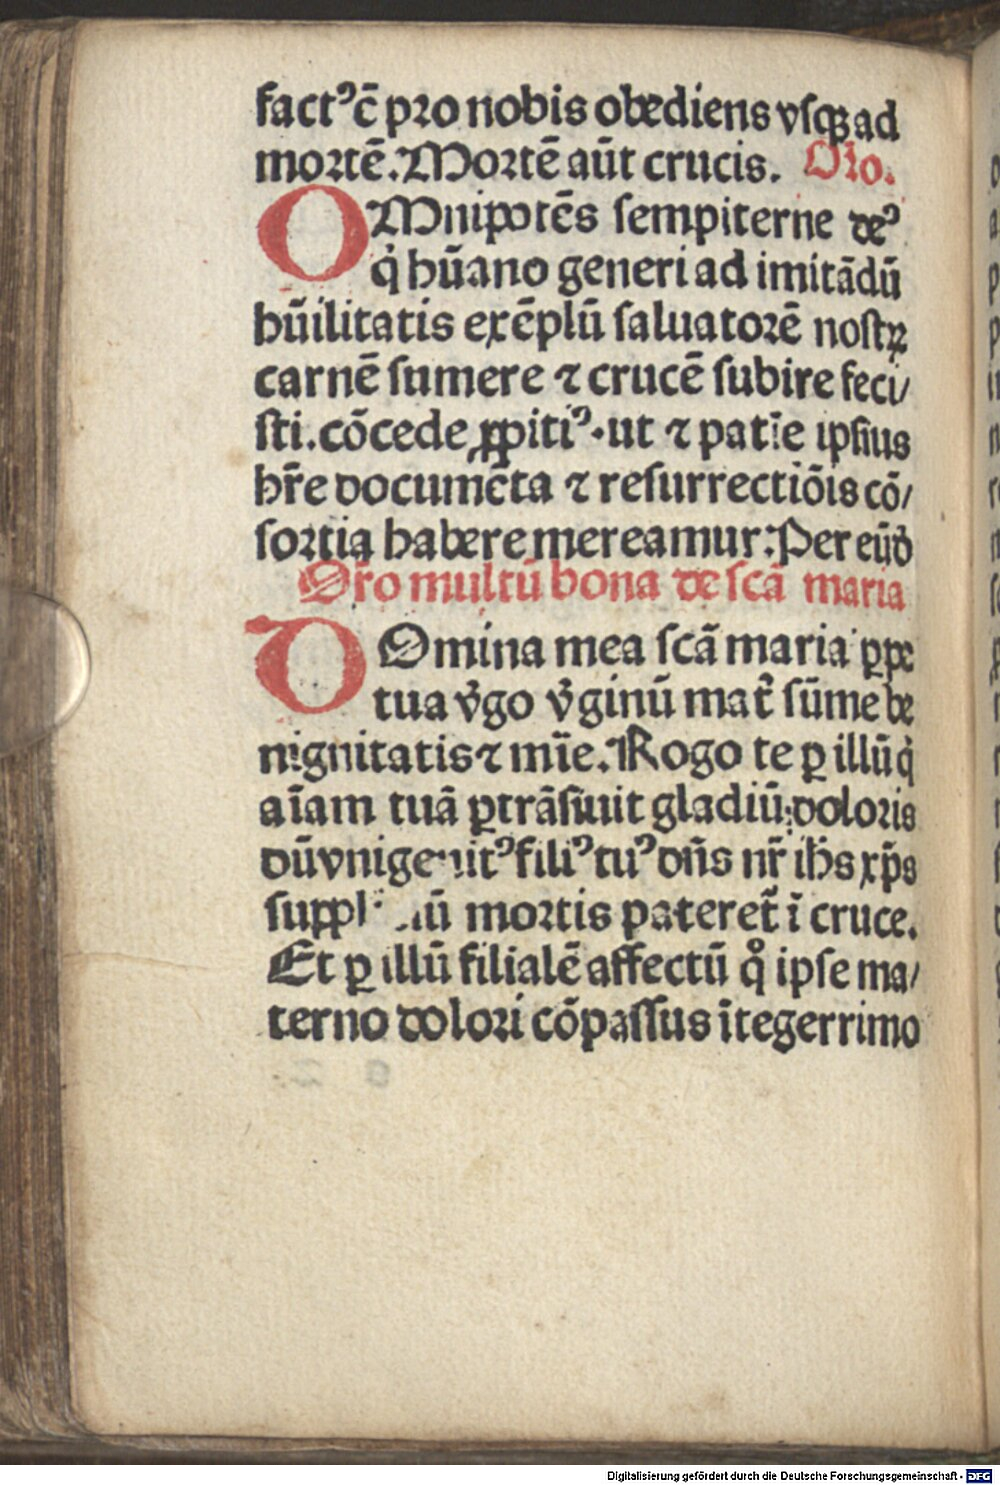 factꝰ ē pro nobis obediens vſqꝫ ad
mortē. Mortē aūt crucis. Oŕo.
OMnipotēs ſempiterne deꝰ
q̇ hūano generi ad imitādū
hūilitatis exēplū ſaluatorē noſtꝝ
carnē ſumere ⁊ crucē ſubire feci/
ſti. cōcede ꝓpitiꝰ. ut ⁊ patīe ipſius
hr̄e documēta ⁊ reſurrectiōis cō/
ſortia habere mereamur: Per eūd̄
Oŕo multū bona de ſcā maria
DOmina mea ſcā maria ꝑpe
tua v̓go v̓ginū mat̓ ſūme be
nignitatis ⁊ mīe. Rogo te ꝑ illū q̇
aīam tuā ꝑtrāſiuit gladiū: doloris
dū vnigenitꝰ filiꝰ tuꝰ dn̄s nr̄ ih̄s xp̄s
mortis pateret̃ ī cruce.
Et ꝑ illū filialē affectū q̊ ipſe ma/
terno dolori cōpaſſus ītegerrimo
Digitalisierung gefördert durch die Deutsche Forschungsgemeinschaft - DFG